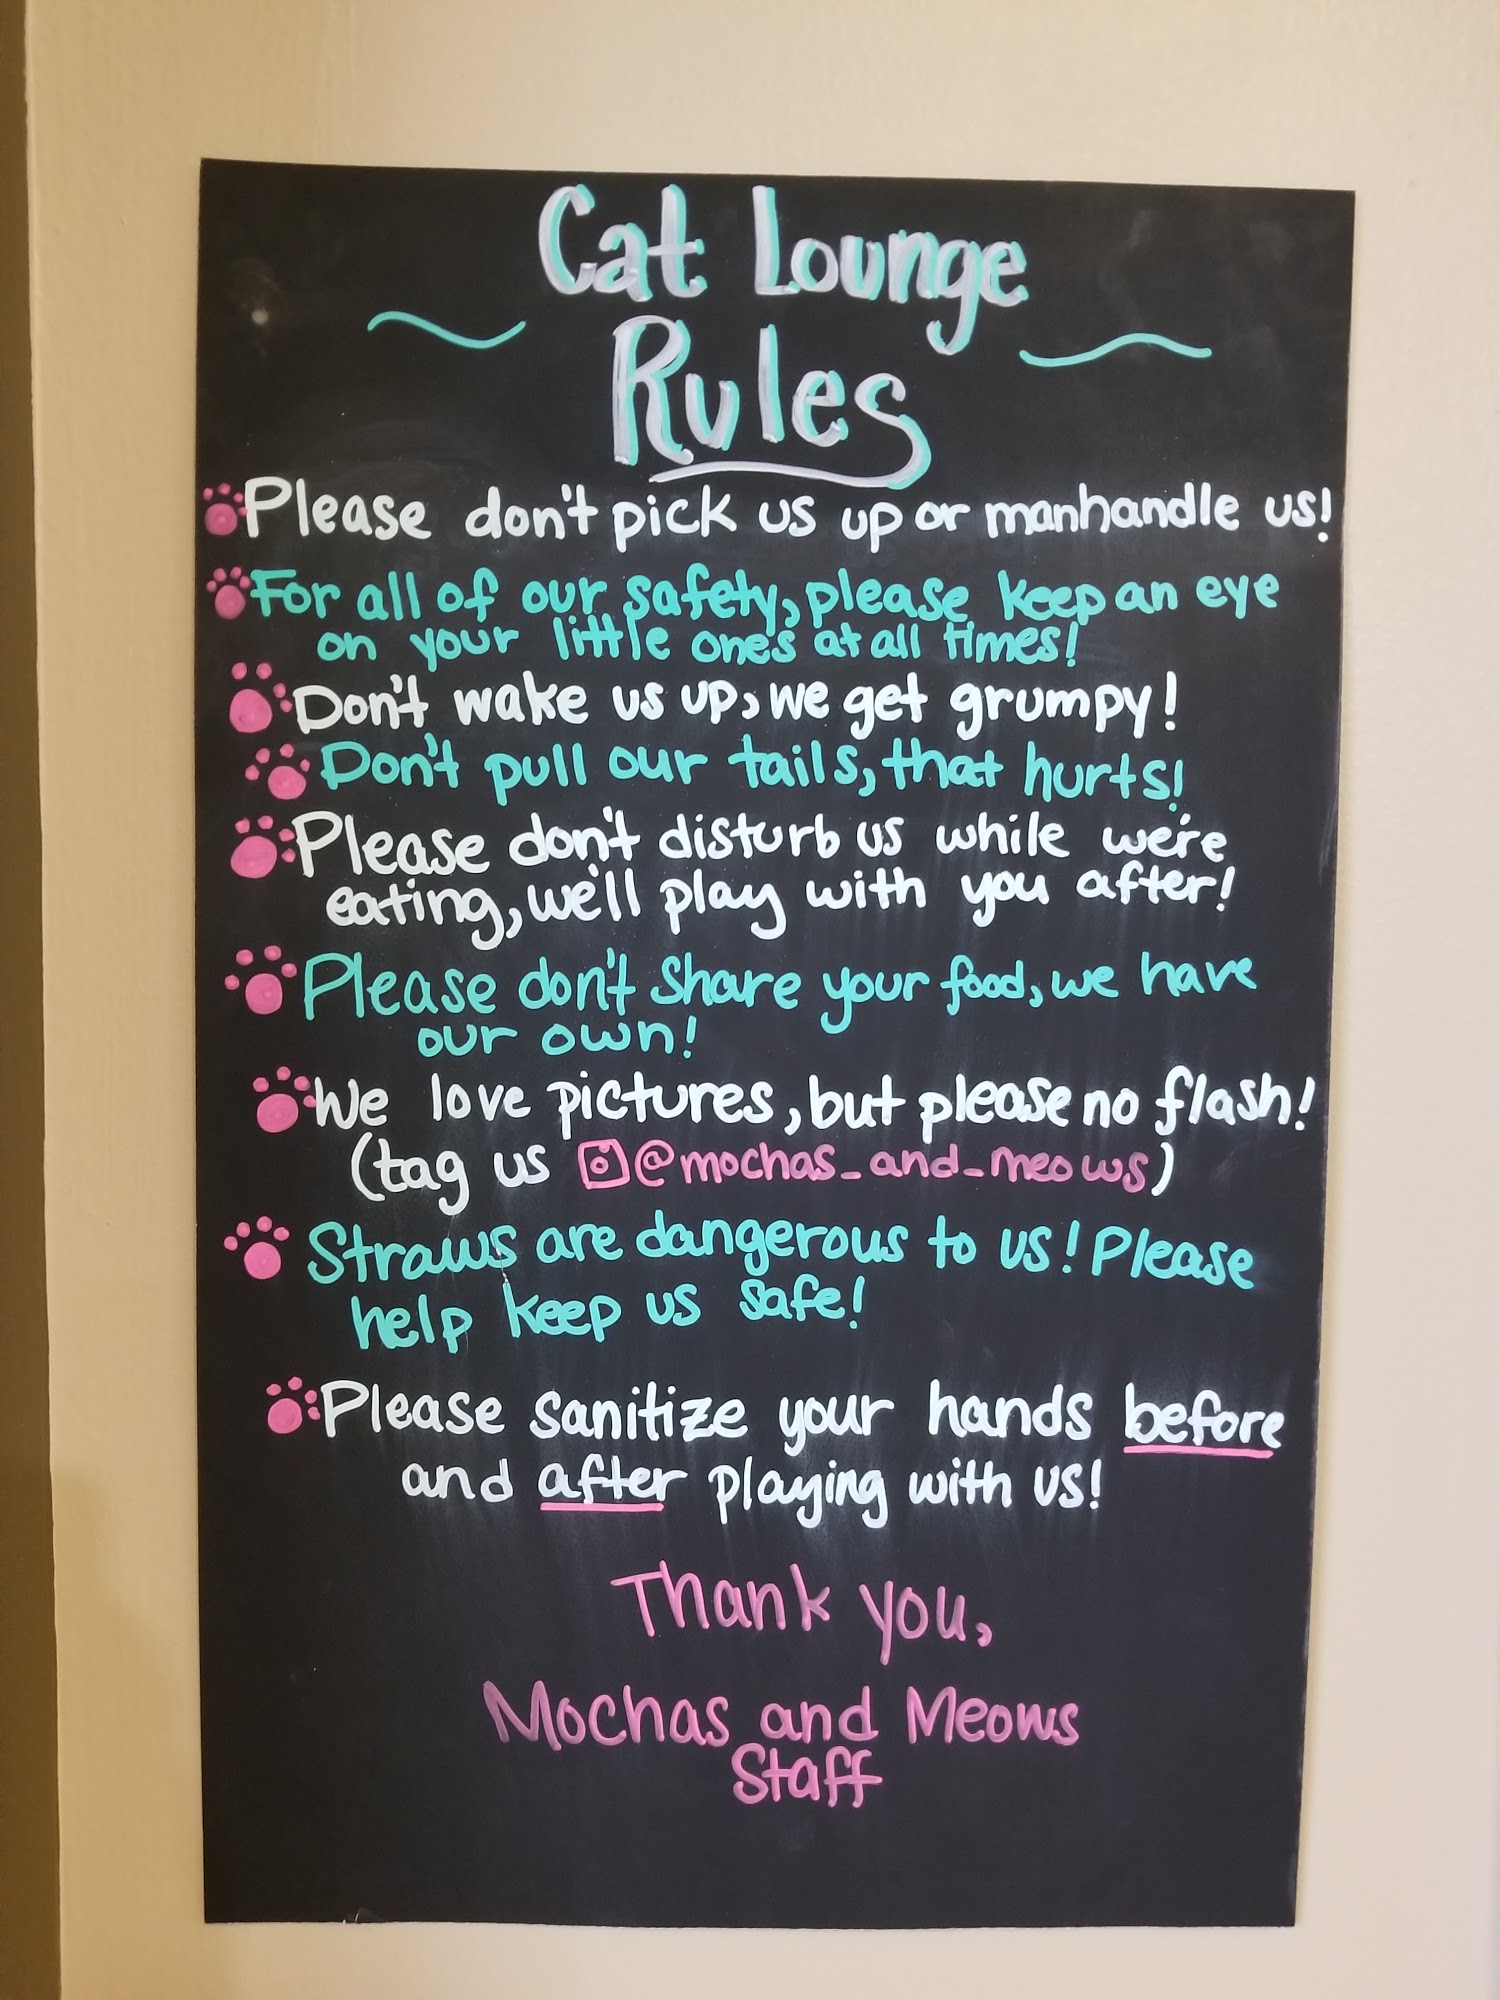 Cat Lounge
Rules
Please don't pick us up or manhandle us!
For all of our safety, please keep an eye
on your little ones at all times!
Don't wake us up, we get grumpy!
Don't pull our tails, that hurts!
Please don't disturb us while we're
eating, we'll play with you after!
Please don't share your food, we have
our own!
We love pictures, but please no flash!
(tag us @mochas_and_meows)
Straws are dangerous to us! Please
help keep us safe!
Please sanitize your hands before
and after playing with us!
Thank you,
Mochas and Meows
Staff